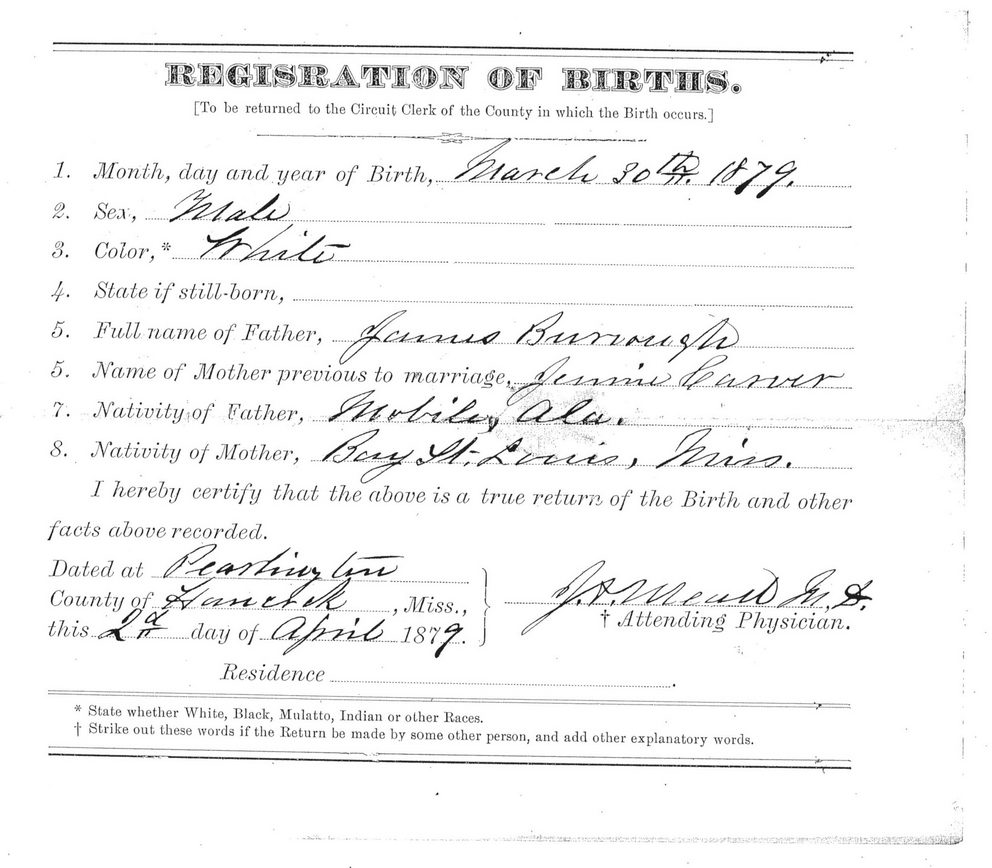 REGISRATION OF BIRTHS.
[To be returned to the Circuit Clerk of the County in which the Birth occurs.]
1. Month, day and year of Birth, March 30th. 1879.
2. Sex, Male
3. Color,* White
4. State if still-born,
5. Full name of Father, James Burrough
5. Name of Mother previous to marriage, Jennie Carver
7. Nativity of Father, Mobile, Ala.
8. Nativity of Mother, Bay St. Louis, Miss.
I hereby certify that the above is a true return of the Birth and other
facts above recorded.
Dated at Pearlington
County of Hancock, Miss.,
this 2d day of April 1879.
J. A. Mead M. D.
† Attending Physician.
Residence
* State whether White, Black, Mulatto, Indian or other Races.
† Strike out these words if the Return be made by some other person, and add other explanatory words.